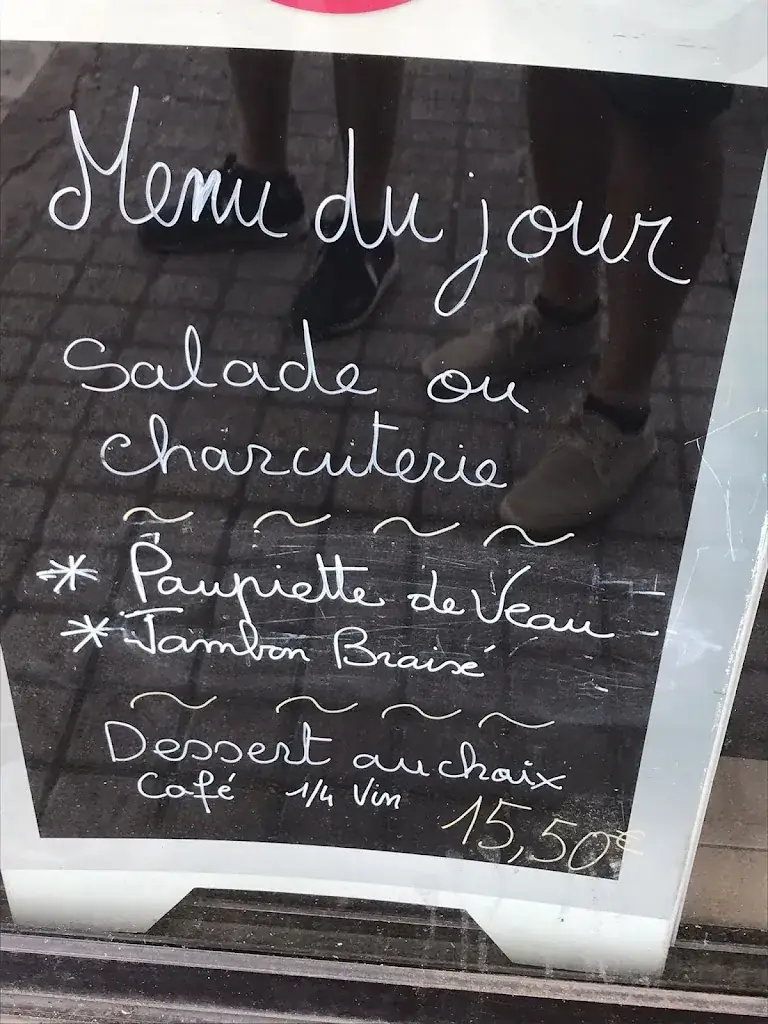 Menu du jour
Salade ou
charcuterie
~ ~ ~ ~
* Paupiette de Veau -
* Jambon Braisé
~ ~ ~ ~
Dessert au choix
Café 1/4 Vin
15,50€